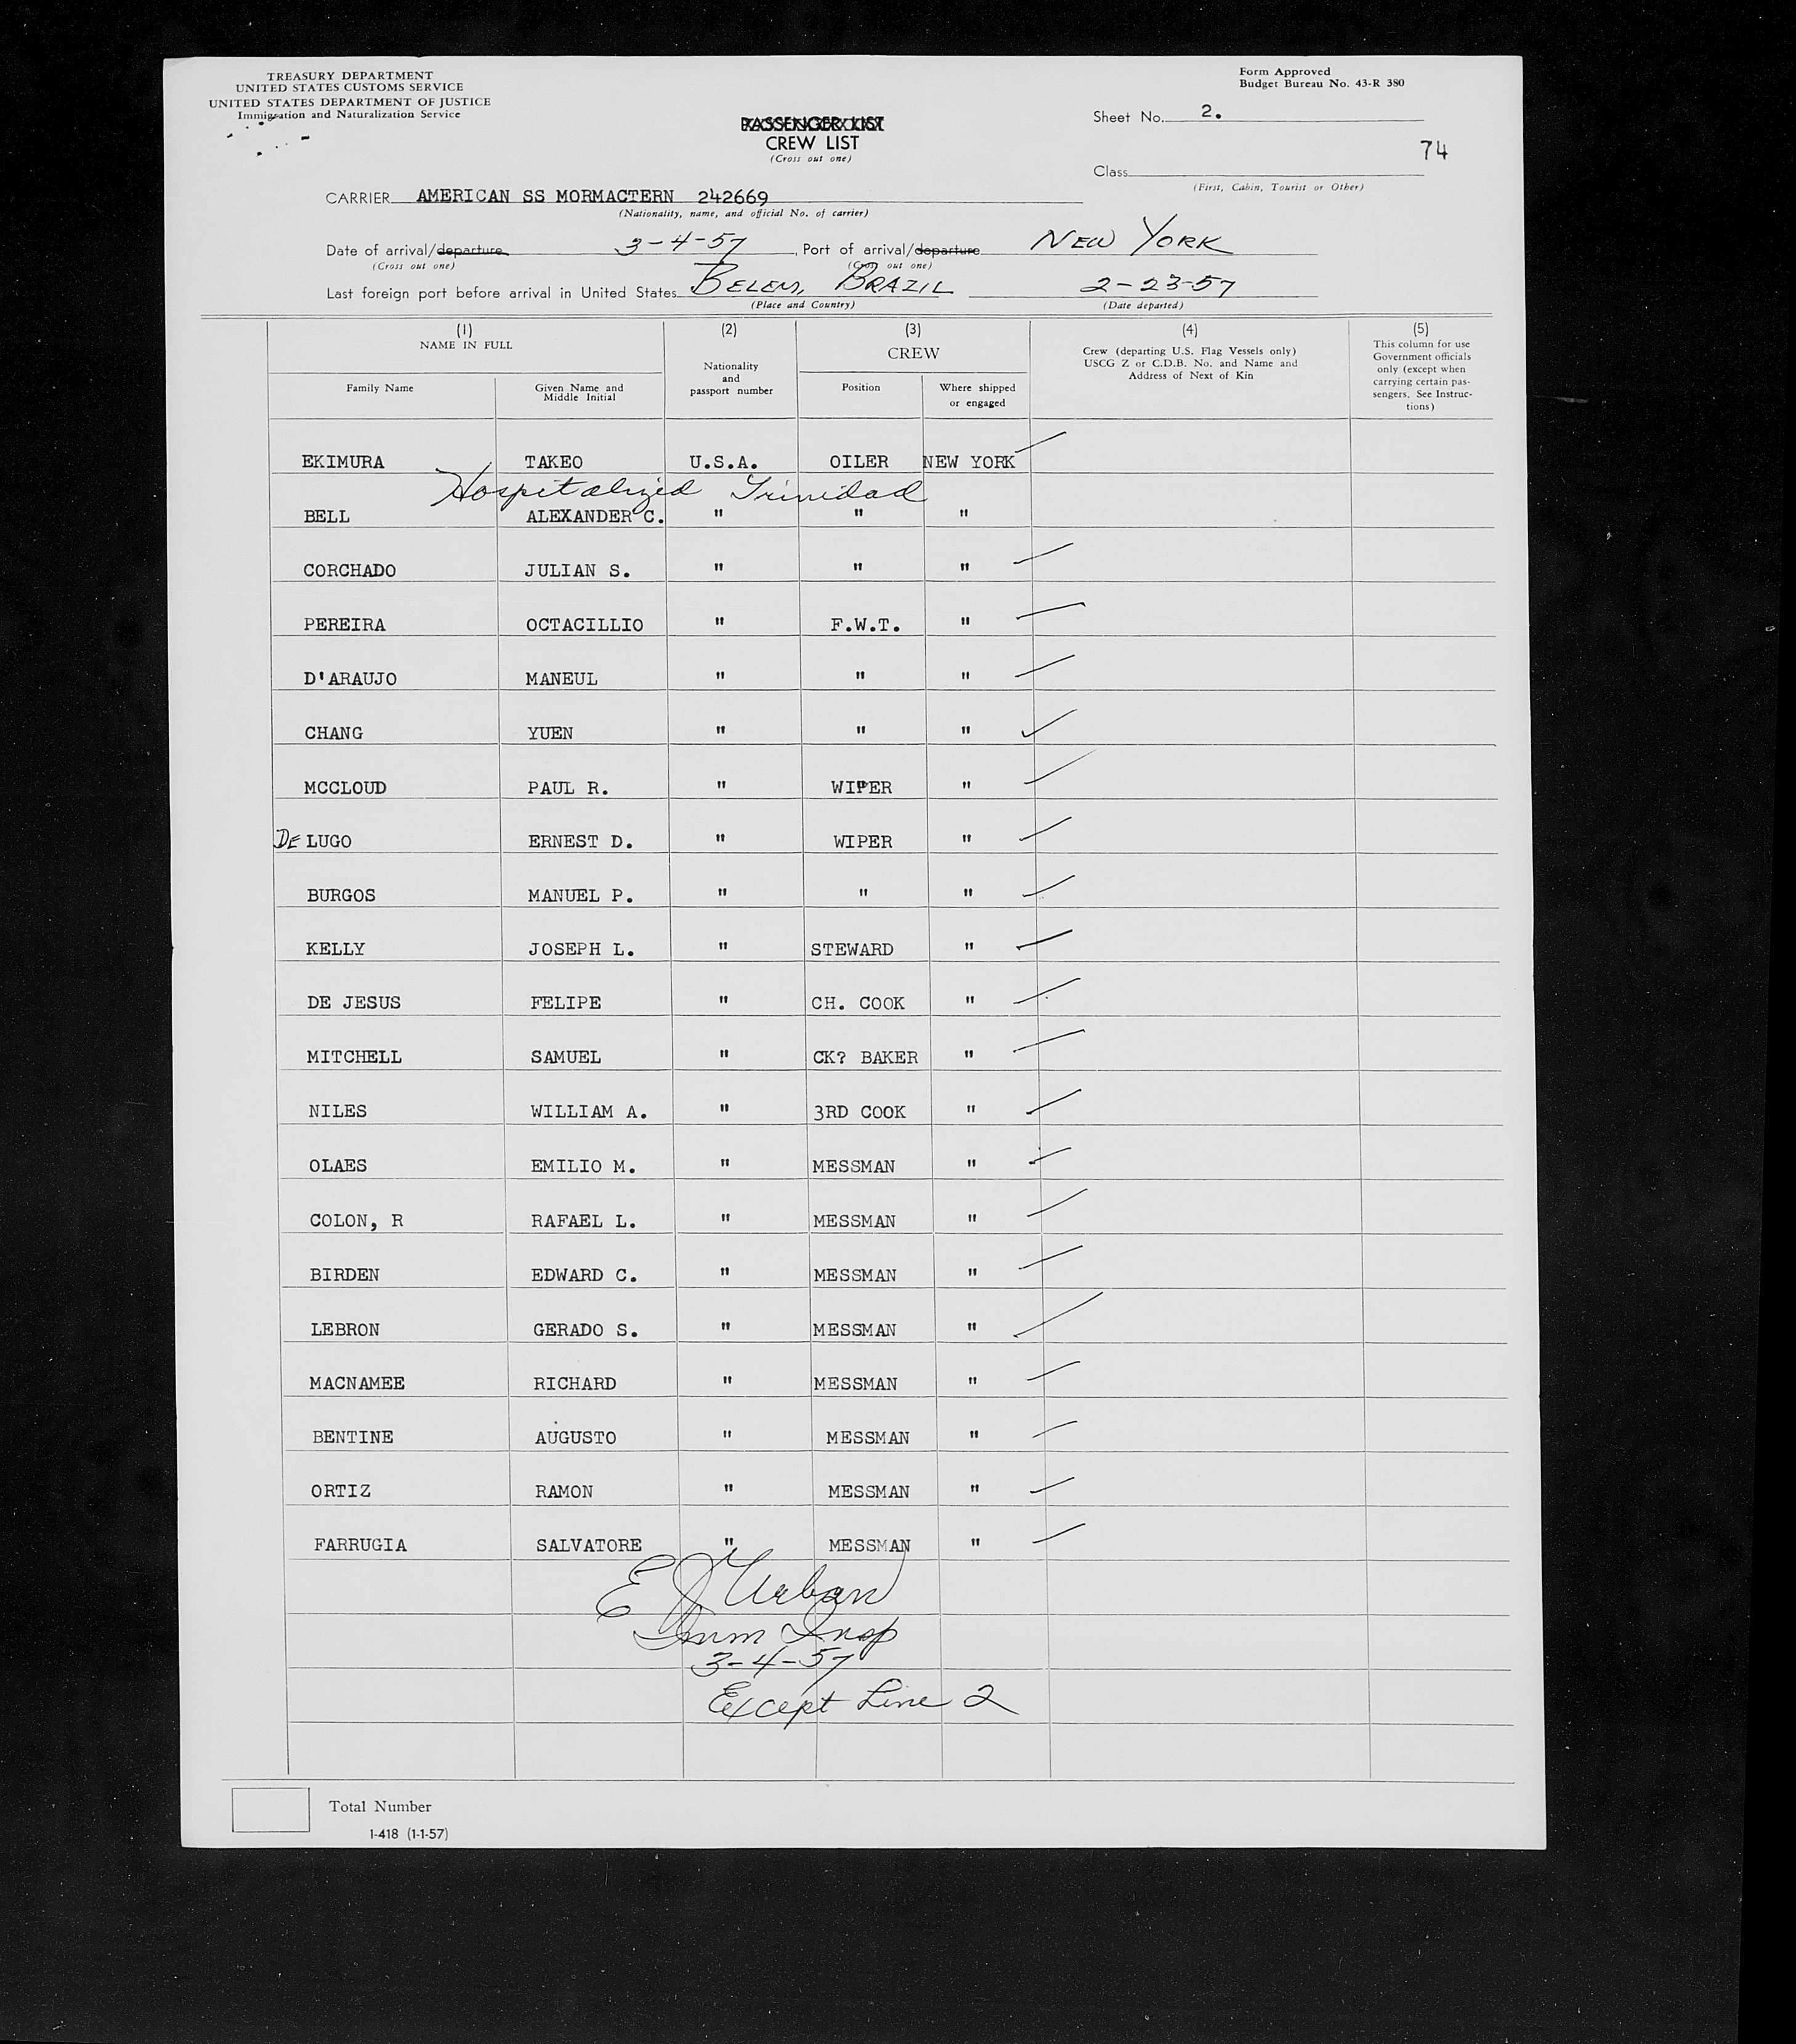 TREASURY DEPARTMENT
UNITED STATES CUSTOMS SERVICE
UNITED STATES DEPARTMENT OF JUSTICE
Immigration and Naturalization Service
Form Approved
Budget Bureau No. 43-R 380
PASSENGER LIST
CREW LIST
(Cross out one)
Sheet No. 2.
74
Class
(First, Cabin, Tourist or Other)
CARRIER AMERICAN SS MORMACTERN 242669
(Nationality, name, and official No. of carrier)
Date of arrival/departure 3-4-57, Port of arrival/departure NEW YORK
(Cross out one) (Cross out one)
Last foreign port before arrival in United States BELEM, BRAZIL 2-23-57
(Place and Country) (Date departed)
(1) (2) (3) (4) (5)
NAME IN FULL
Family Name
Given Name and
Middle Initial
Nationality
and
passport number
CREW
Position
Where shipped
or engaged
Crew (departing U.S. Flag Vessels only)
USCG Z or C.D.B. No. and Name and
Address of Next of Kin
This column for use
Government officials
only (except when
carrying certain pas-
sengers. See Instruc-
tions)
EKIMURA TAKEO U.S.A. OILER NEW YORK
Hospitalized Trinidad
BELL ALEXANDER C. " " "
CORCHADO JULIAN S. " " "
PEREIRA OCTACILLIO " F.W.T. "
D'ARAUJO MANEUL " " "
CHANG YUEN " " "
MCCLOUD PAUL R. " WIPER "
DE LUGO ERNEST D. " WIPER "
BURGOS MANUEL P. " " "
KELLY JOSEPH L. " STEWARD "
DE JESUS FELIPE " CH. COOK "
MITCHELL SAMUEL " CK? BAKER "
NILES WILLIAM A. " 3RD COOK "
OLAES EMILIO M. " MESSMAN "
COLON, R RAFAEL L. " MESSMAN "
BIRDEN EDWARD C. " MESSMAN "
LEBRON GERADO S. " MESSMAN "
MACNAMEE RICHARD " MESSMAN "
BENTINE AUGUSTO " MESSMAN "
ORTIZ RAMON " MESSMAN "
FARRUGIA SALVATORE " MESSMAN "
E J Urban
Imm Insp
3-4-57
Except Line 2
Total Number
1-418 (1-1-57)